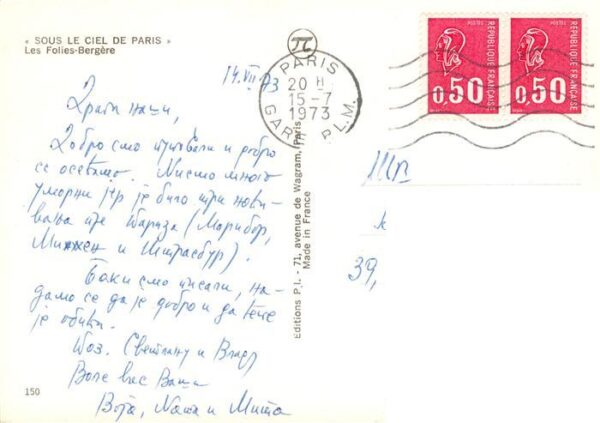 « SOUS LE CIEL DE PARIS »
Les Folies-Bergère
14.VII 73
Драги наши,
Добро смо путовали и добро
се осећамо. Нисмо много
уморни јер је било три нови-
вања пре Париза (Марибор,
Минхен и Штрасбур).
Баки смо писали, на-
дамо се да је добро и да неће
је
Поз. Светлану и Владу
Воле вас Ваши
Војa, Наша и Мита
150
Editions P.I. - 71, avenue de Wagram, Paris
Made in France
π
PARIS
20 H
15-7
1973
GARE P.L.M.
REPUBLIQUE FRANÇAISE
0,50
REPUBLIQUE FRANÇAISE
0,50
к
39,